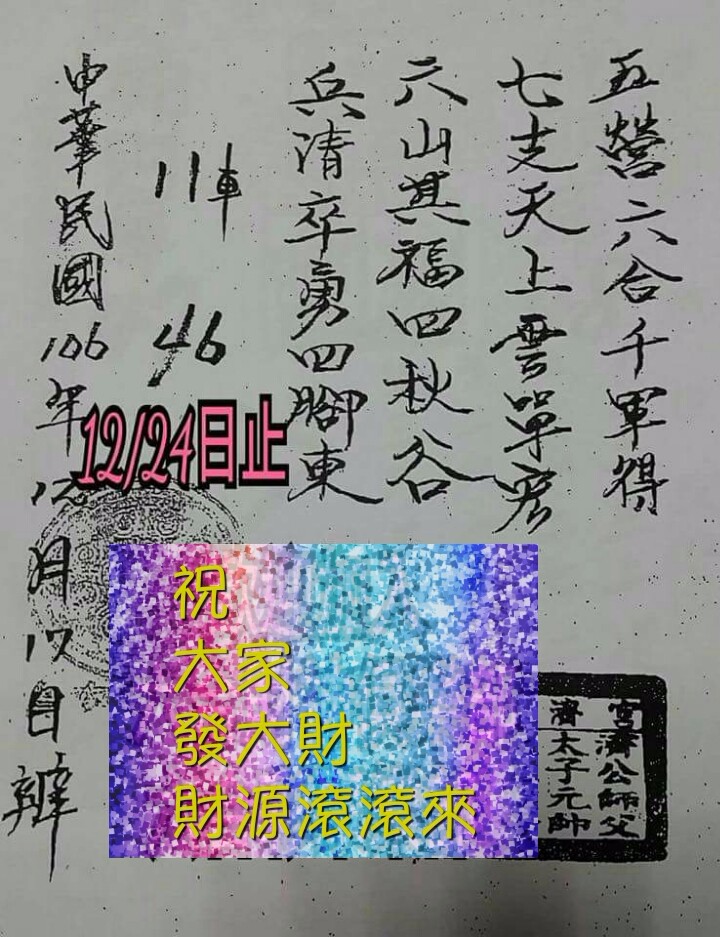 五營六合千軍得
七支天上雲單宏
六山其福四秋谷
兵清卒勇四腳東
11車
46
中華民國106年12月17日辦
12/24日止
祝
大家
發大財
財源滾滾來
宮濟公師父
濟太子元帥